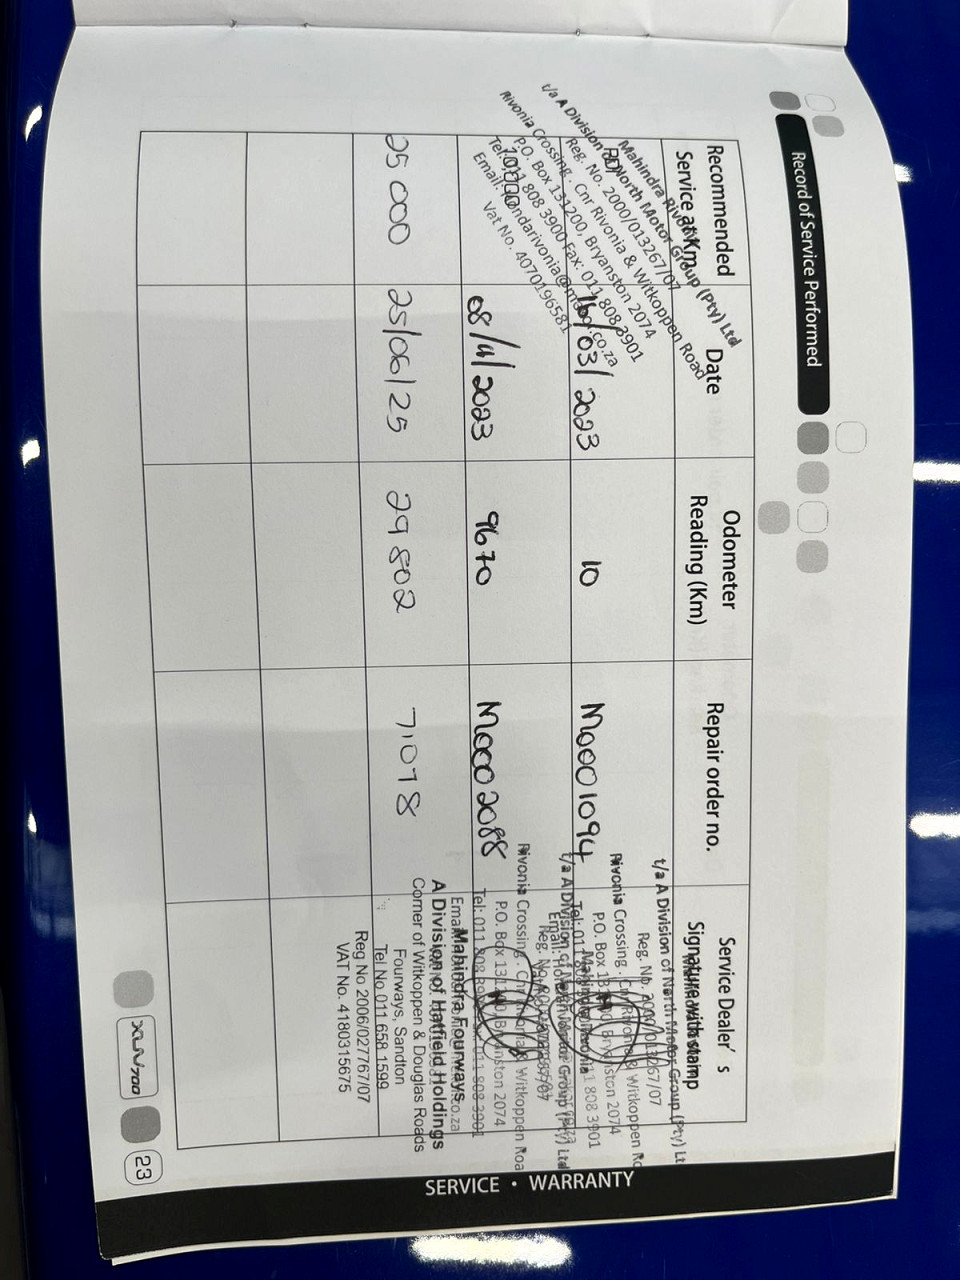 Record of Service Performed
Recommended Service at Km
Date
Odometer Reading (Km)
Repair order no.
Service Dealer's Signature with stamp
Mahindra Rivonia
t/a A Division of North Motor Group (Pty) Ltd
Reg. No. 2000/013267/07
Rivonia Crossing . Cnr Rivonia & Witkoppen Road
P.O. Box 131200, Bryanston 2074
Tel: 011 808 3900 Fax: 011 808 3901
Email: hondarivonia@
.co.za
Vat No. 4070196581
PDI
16/03/2023
10
M0001094
t/a A Division of North Motor Group (Pty) Lt
Reg. No. 2000/013267/07
Rivonia Crossing . Cnr Rivonia & Witkoppen Ro
P.O. Box 131200 Bryanston 2074
Tel: 011 808 3901
10000
08/11/2023
9670
M0002088
t/a A Division of North Motor Group (Pty) Ltd
Rivonia Crossing . Cnr Rivonia & Witkoppen Roa
P.O. Box 131200 Bryanston 2074
Tel: 011 808 3900 011 808 3901
25 000
25/06/25
29 802
71078
Mahindra Fourways
A Division of Hatfield Holdings
Corner of Witkoppen & Douglas Roads
Fourways, Sandton
Tel No 011 658 1599
Reg No 2006/027767/07
VAT No. 4180315675
SERVICE • WARRANTY
XUV700
23